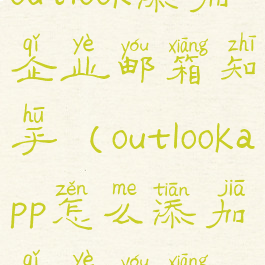 outlook添加
qǐ yè yóu xiāng zhī
企业邮箱知
hū
乎（outlooka
zěn me tiān jiā
pp怎么添加
qǐ yè yóu xiāng